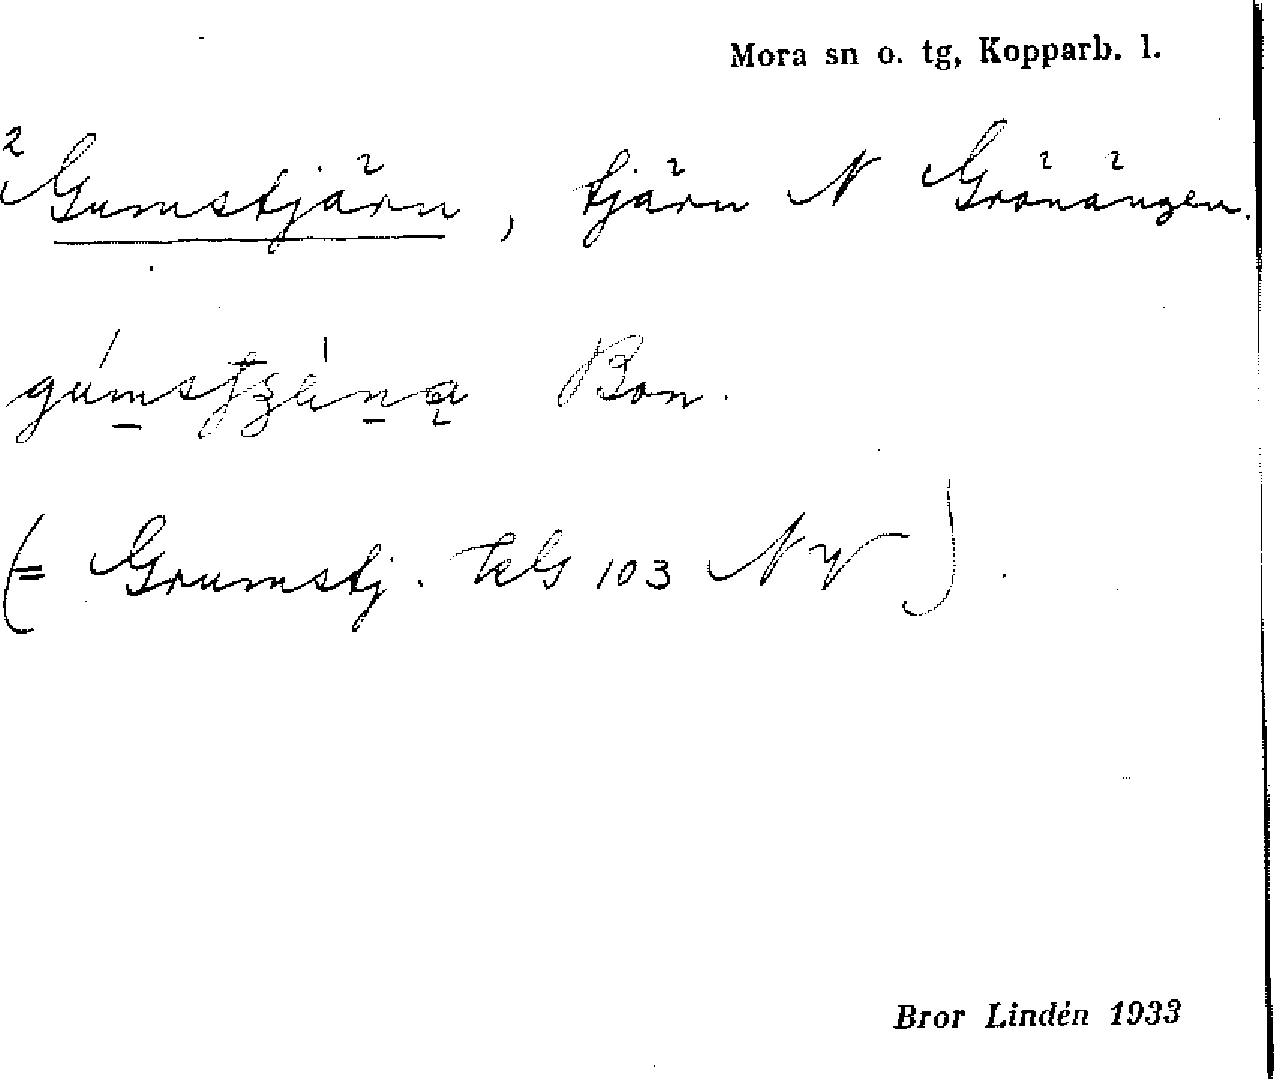 Mora sn o. tg, Kopparb. l.
2 Gumstjärn, tjärn N Grönängen.
Bon.
(= Grumstj. kbl 103 NV)
Bror Lindén 1933